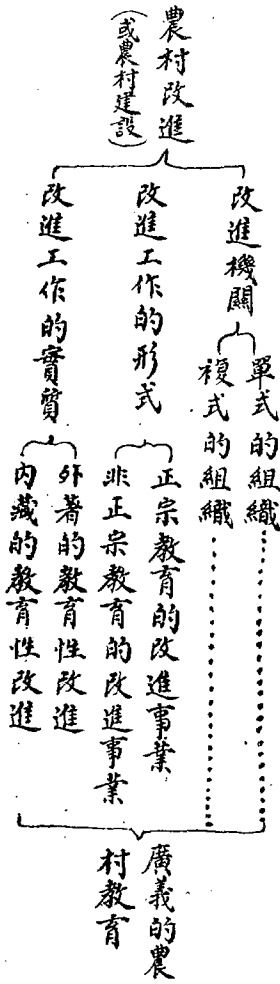 農村改進
(或農村建設)
改進機關
單式的組織
複式的組織
改進工作的形式
正宗教育的改進事業
非正宗教育的改進事業
改進工作的實質
外著的教育性改進
內藏的教育性改進
廣義的農
村教育